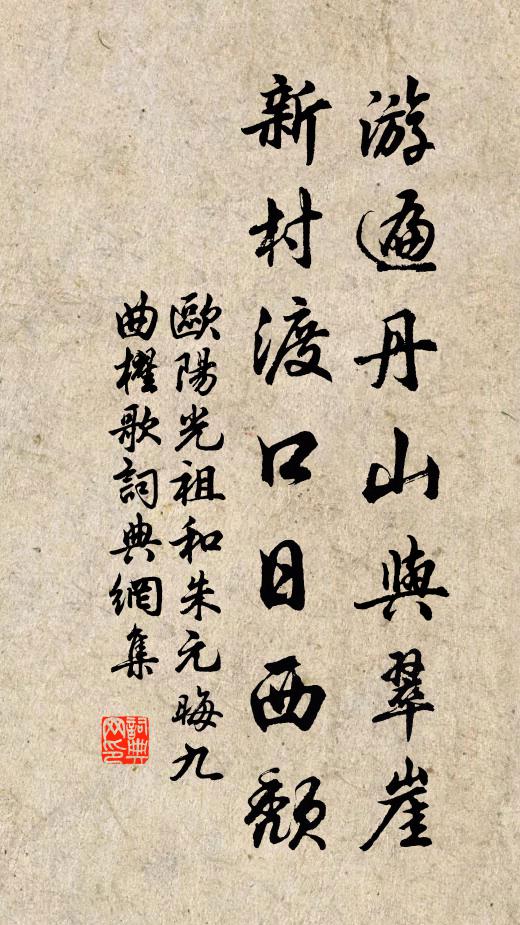 游遍丹山與翠崖
新村渡口日西頹
歐陽光祖和朱元晦九
曲櫂歌詞典網集
詞典
网印